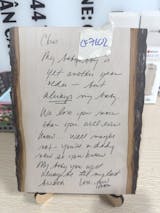 Chris
My baby boy is
yet another year
older – but
always my baby
We love you more
than you will ever
know – well maybe
not – you're a daddy
now so you know
My baby you will
always be til my last
Love you
Mom